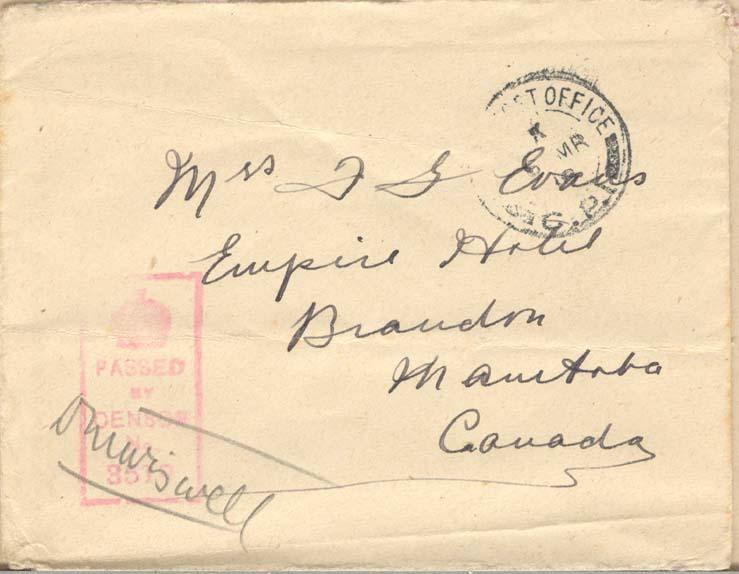 POST OFFICE
MR
G.P.1
Mrs F G Evans
Empire Hotel
Brandon
Manitoba
Canada
PASSED
BY
CENSOR
No.